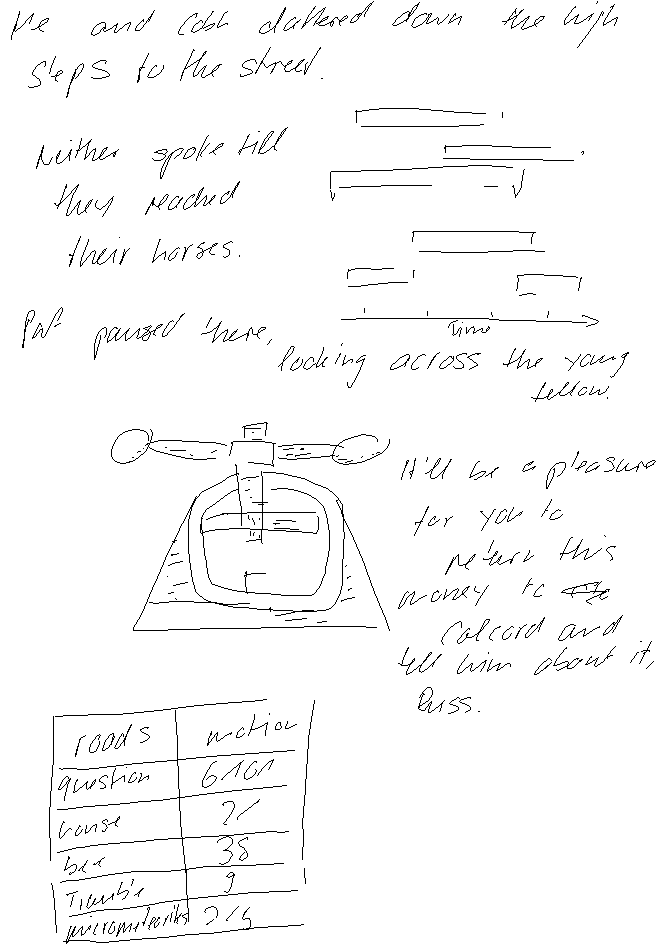 He and Cobb clattered down the high
steps to the street.
Neither spoke till
they reached
their horses.
Time
Pat paused there,
looking across the young
fellow.
It'll be a pleasure
for you to
return this
money to
Colcord and
tell him about it,
Russ.
roads motion
question 6161
house 21
bee 38
Trouble 9
micrometeorites 215